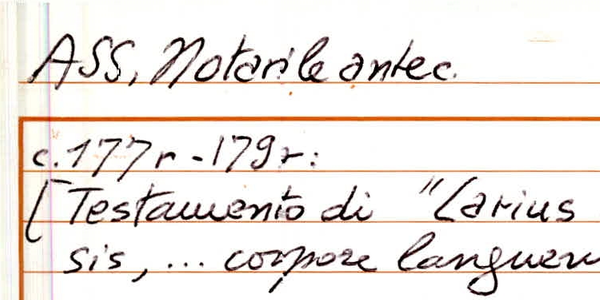 ASS, Notarile antec.
c. 177r - 179r:
[Testamento di "Larius
sis, ... corpore languen